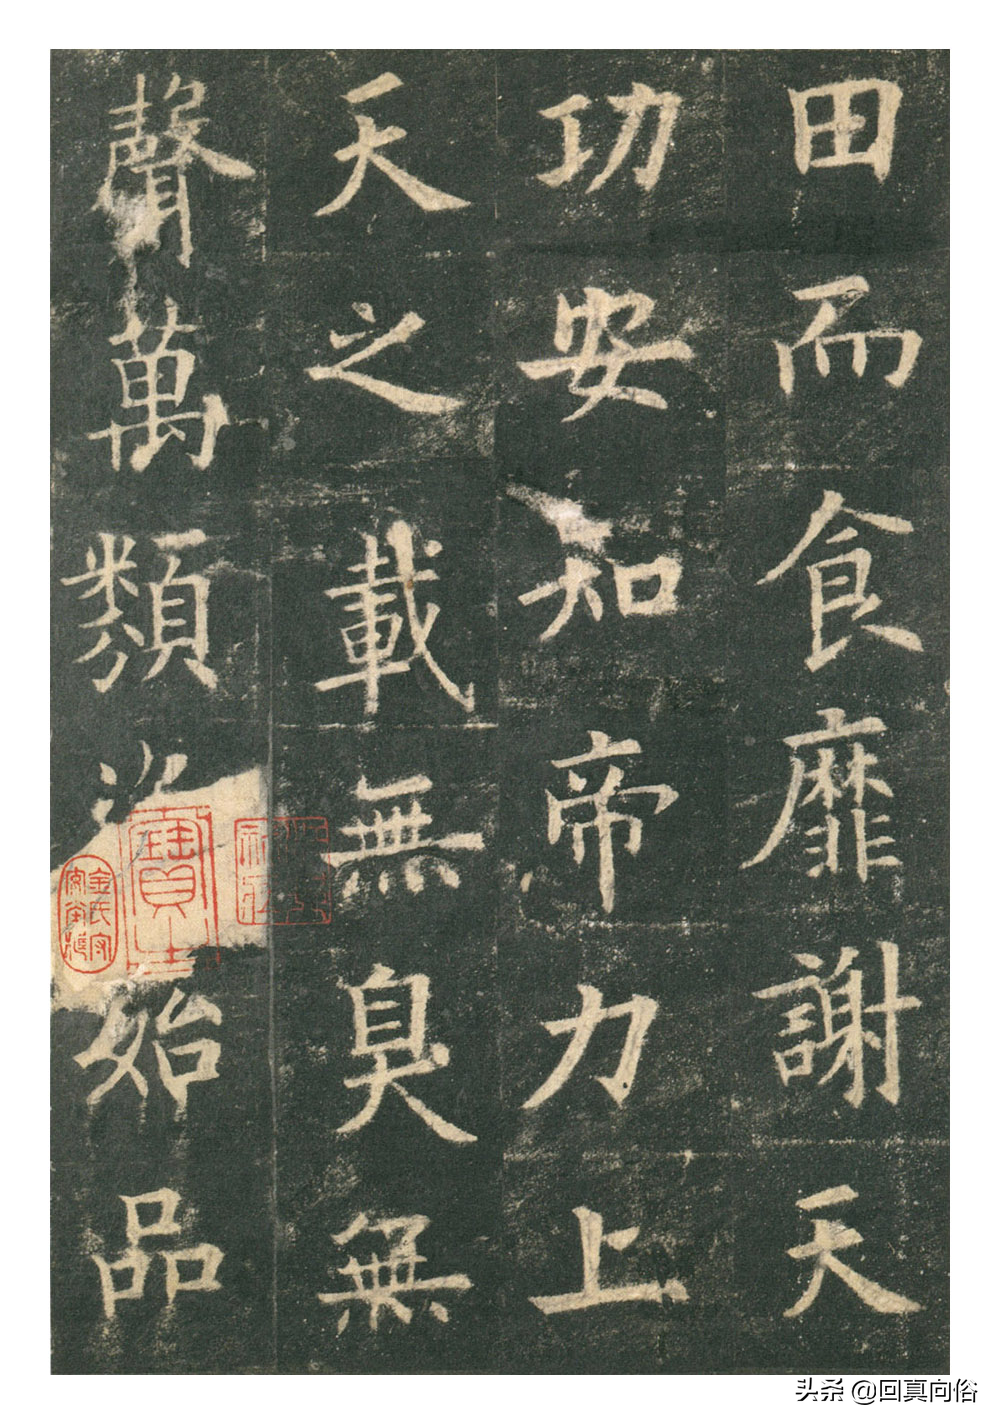 田而食靡謝天
功安知帝力上
天之載無臭無
聲萬類資始品
金氏
頭条 @回真向俗